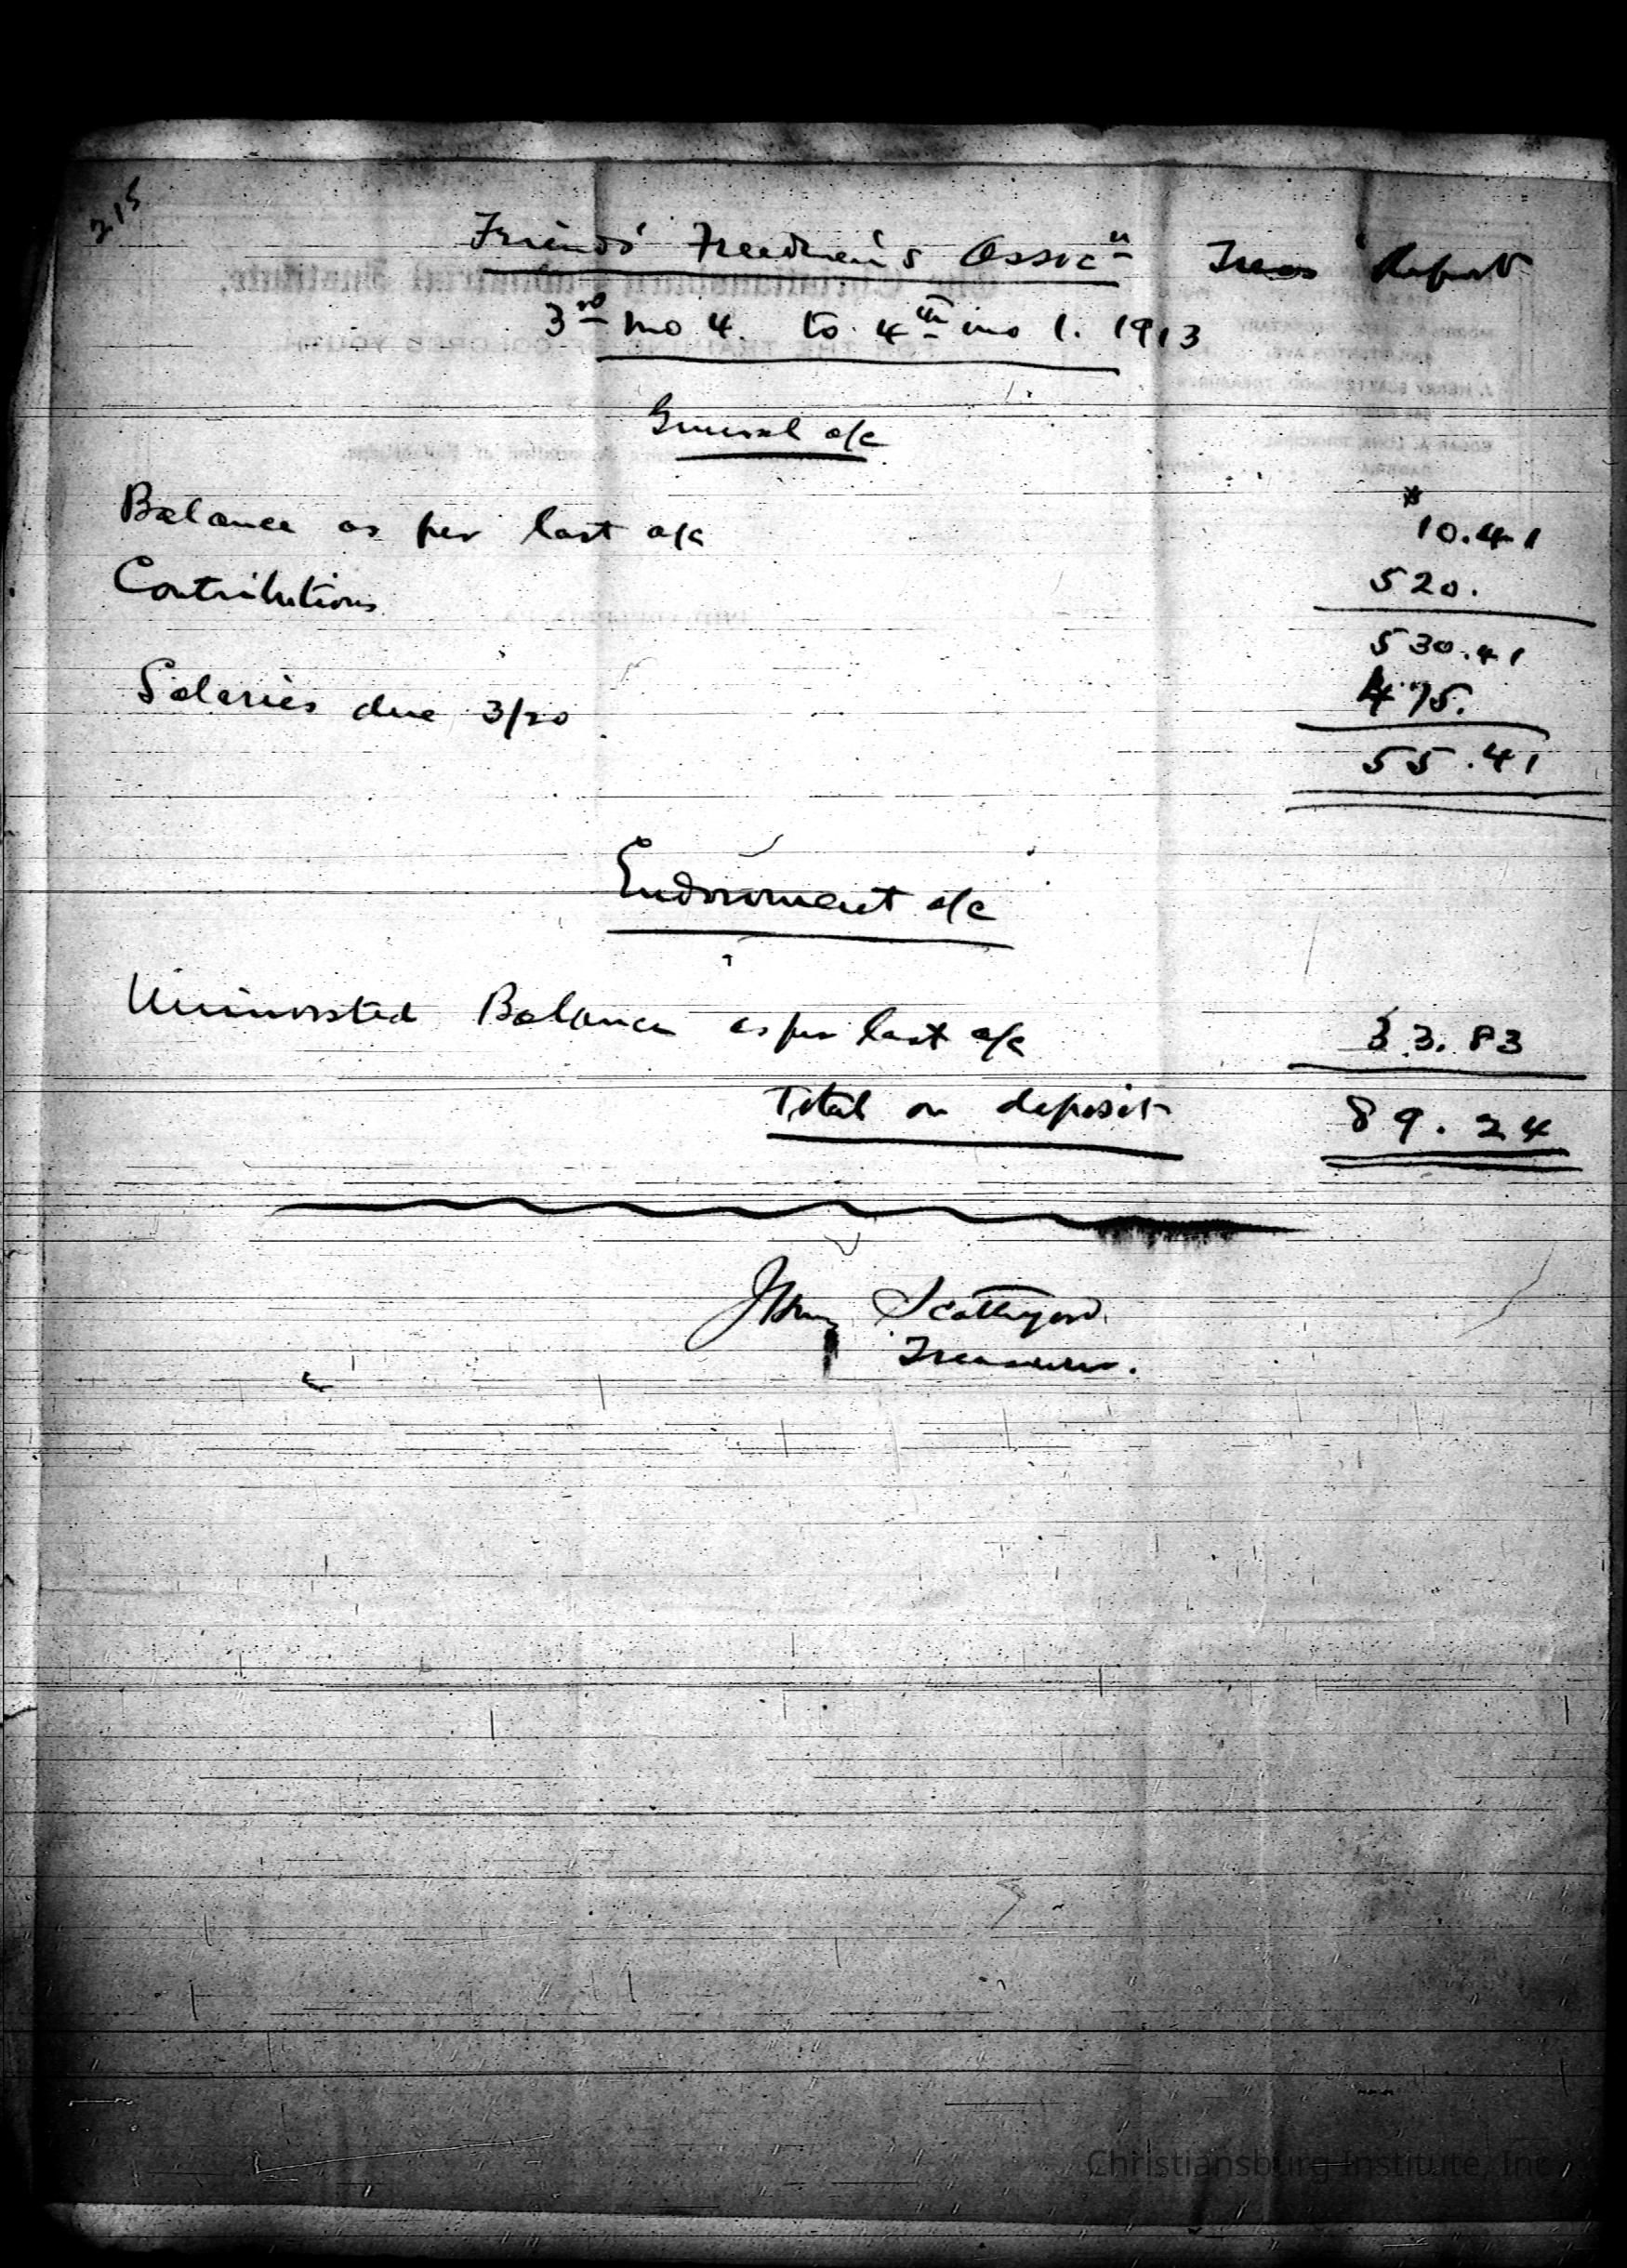 215
Friends' Freedmen's Assocn Treas Report
3rd mo 4. to 4th mo 1. 1913
General a/c
Balance as per last a/c $10.41
Contributions 520.
530.41
Salaries due 3/20 475.
55.41
Endowment a/c
Uninvested Balance as per last a/c 33.83
Total on deposit 89.24
J Henry Scattergood
Treasurer.
Christiansburg Institute, Inc.